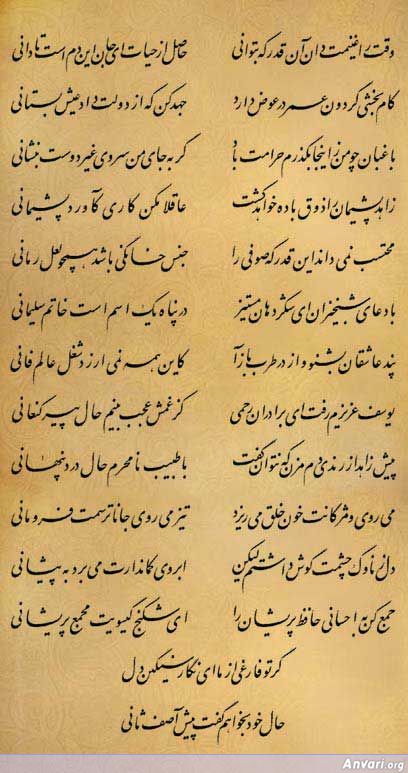 وقت را غنیمت دان آن قدر که بتوانی حاصل از حیات ای جان این دم است تا دانی
کام بخشی گردون عمر در عوض دارد جهد کن که از دولت داد عیش بستانی
باغبان چو من زاینجا بگذرم حرامت باد گر به جای من سروی غیر دوست بنشانی
زاهد پشیمان را ذوق باده خواهد کشت عاقلا مکن کاری کآورد پشیمانی
محتسب نمی‌داند این قدر که صوفی را جنس خانگی باشد همچو لعل رمانی
با دعای شبخیزان ای شکردهان مستیز در پناه یک اسم است خاتم سلیمانی
پند عاشقان بشنو و از در طرب بازآ کاین همه نمی‌ارزد شغل عالم فانی
یوسف عزیزم رفت ای برادران رحمی کز غمش عجب بینم حال پیر کنعانی
پیش زاهد از رندی دم مزن که نتوان گفت با طبیب نامحرم حال درد پنهانی
می‌روی و مژگانت خون خلق می‌ریزد تیز می‌روی جانا ترسمت فرومانی
دل ز ناوک چشمت گوش داشتم لیکن ابروی کماندارت می‌برد به پیشانی
جمع کن به احسانی حافظ پریشان را ای شکنج گیسویت مجمع پریشانی
گر تو فارغی از ما ای نگار سنگین دل
حال خود بخواهم گفت پیش آصف ثانی
Anvari.org